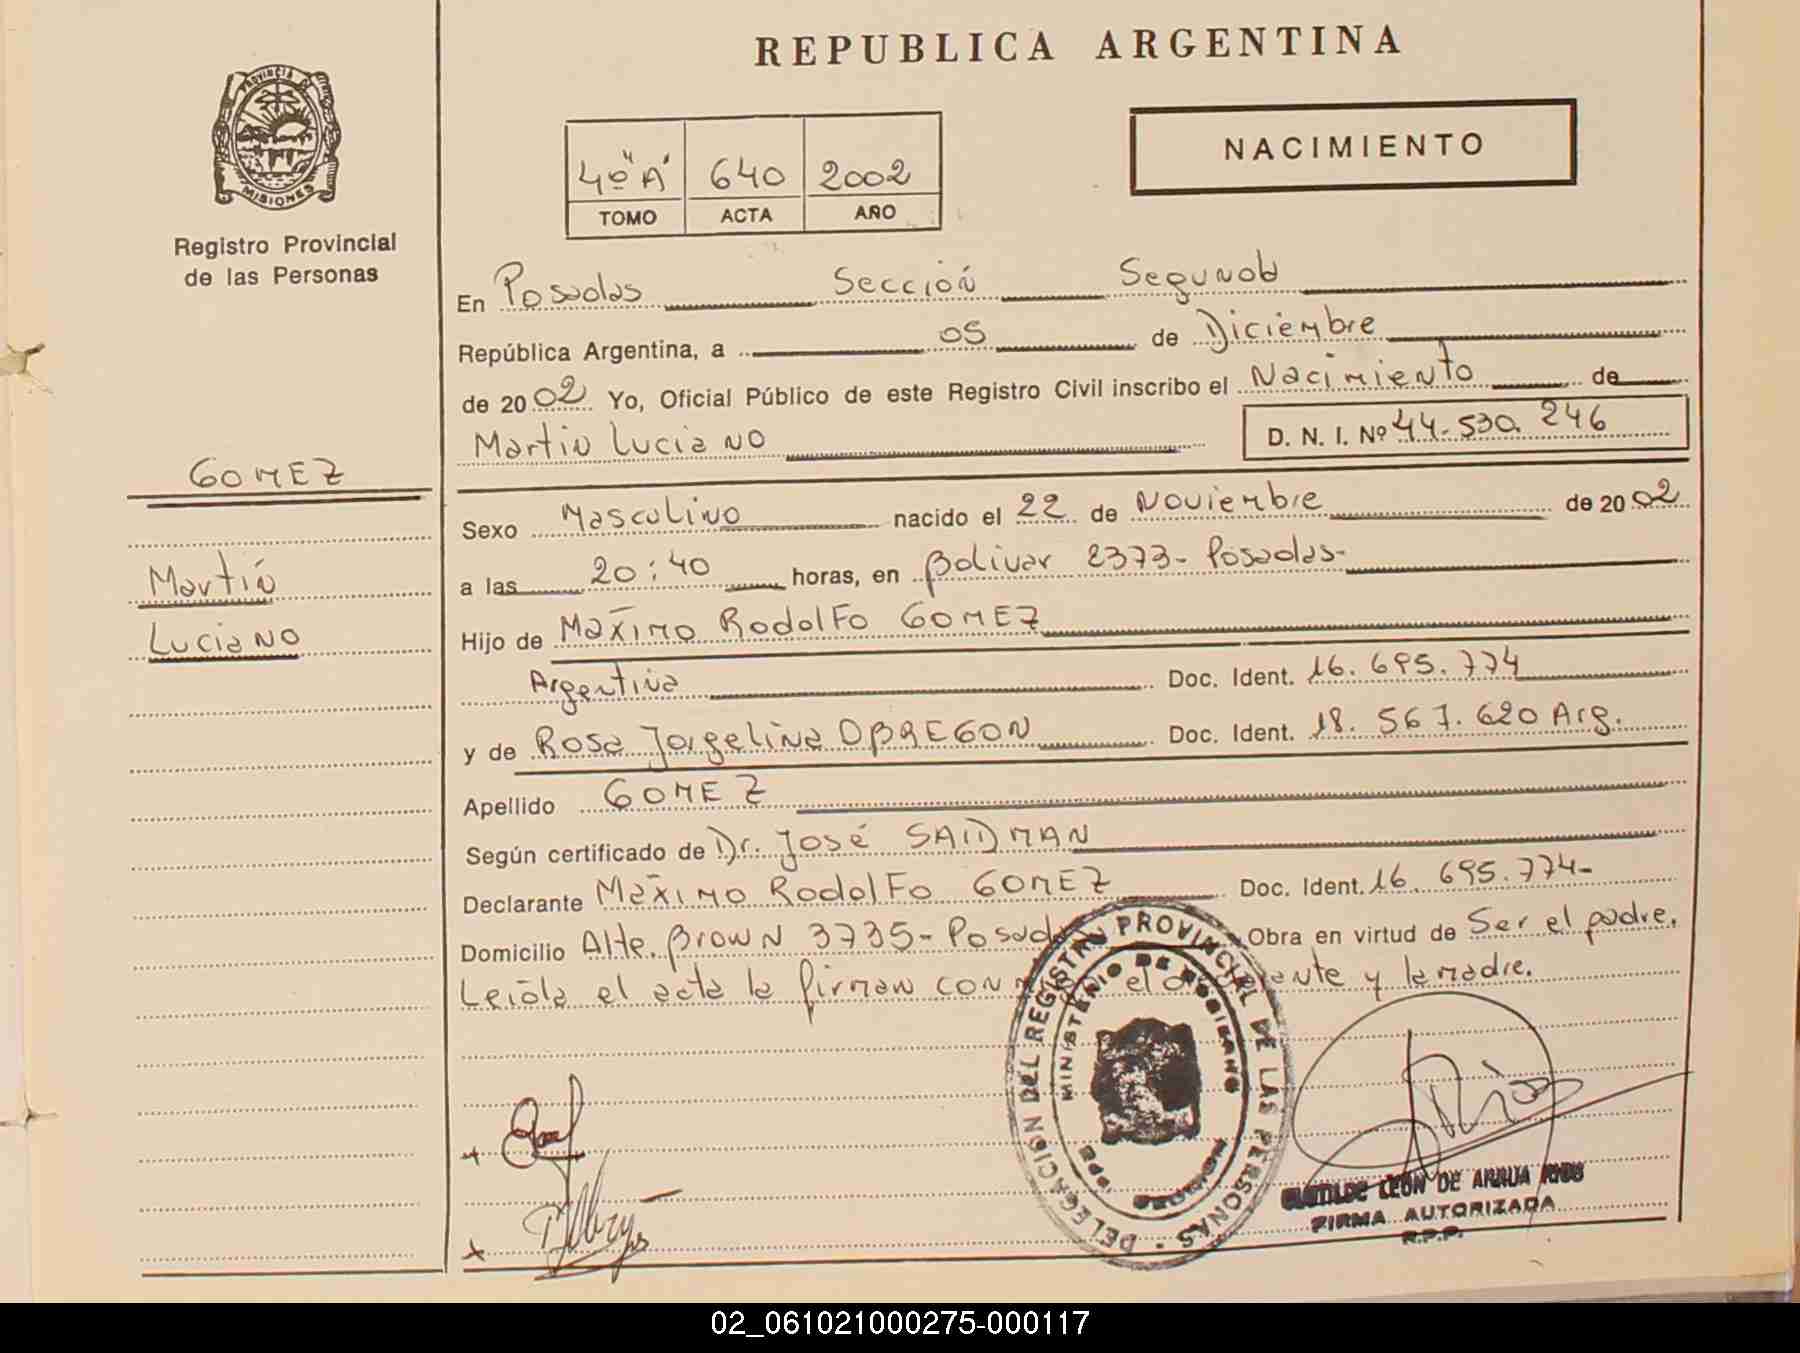 REPUBLICA ARGENTINA
PROVINCIA DE
MISIONES
Registro Provincial
de las Personas
4º "A" 640 2002
TOMO ACTA AÑO
NACIMIENTO
En Posadas Sección Segunda
República Argentina, a 05 de Diciembre
de 2002 Yo, Oficial Público de este Registro Civil inscribo el Nacimiento de
Martin Luciano D. N. I. Nº 44.530.246
GOMEZ
Martín
Luciano
Sexo Masculino nacido el 22 de Noviembre de 2002
a las 20:40 horas, en Bolivar 2373- Posadas-
Hijo de Maximo Rodolfo GOMEZ
Argentina Doc. Ident. 16.695.774
y de Rosa Jorgelina OBREGON Doc. Ident. 18.567.620 Arg.
Apellido GOMEZ
Según certificado de Dr. José SAIDMAN
Declarante Maximo Rodolfo GOMEZ Doc. Ident. 16.695.774-
Domicilio Alte. Brown 3735- Posadas Obra en virtud de Ser el padre.
Leida el acta la firman con el y la madre.
DELEGACION DEL REGISTRO PROVINCIAL DE LAS PERSONAS -
MINISTERIO DE GOBIERNO
MISIONES
CLOTILDE LEON DE ARRUA RIOS
FIRMA AUTORIZADA
R.P.P.
02_061021000275-000117